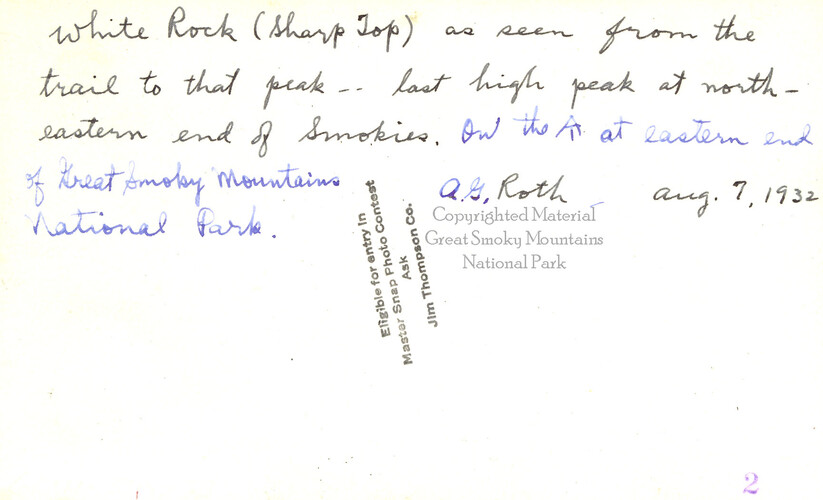 White Rock (Sharp Top) as seen from the
trail to that peak -- last high peak at north-
eastern end of Smokies. On the AT at eastern end
of Great Smoky Mountains
National Park.
A.G. Roth Aug. 7, 1932
Copyrighted Material
Great Smoky Mountains
National Park
Eligible for entry in
Master Snap Photo Contest
Ask
Jim Thompson Co.
2